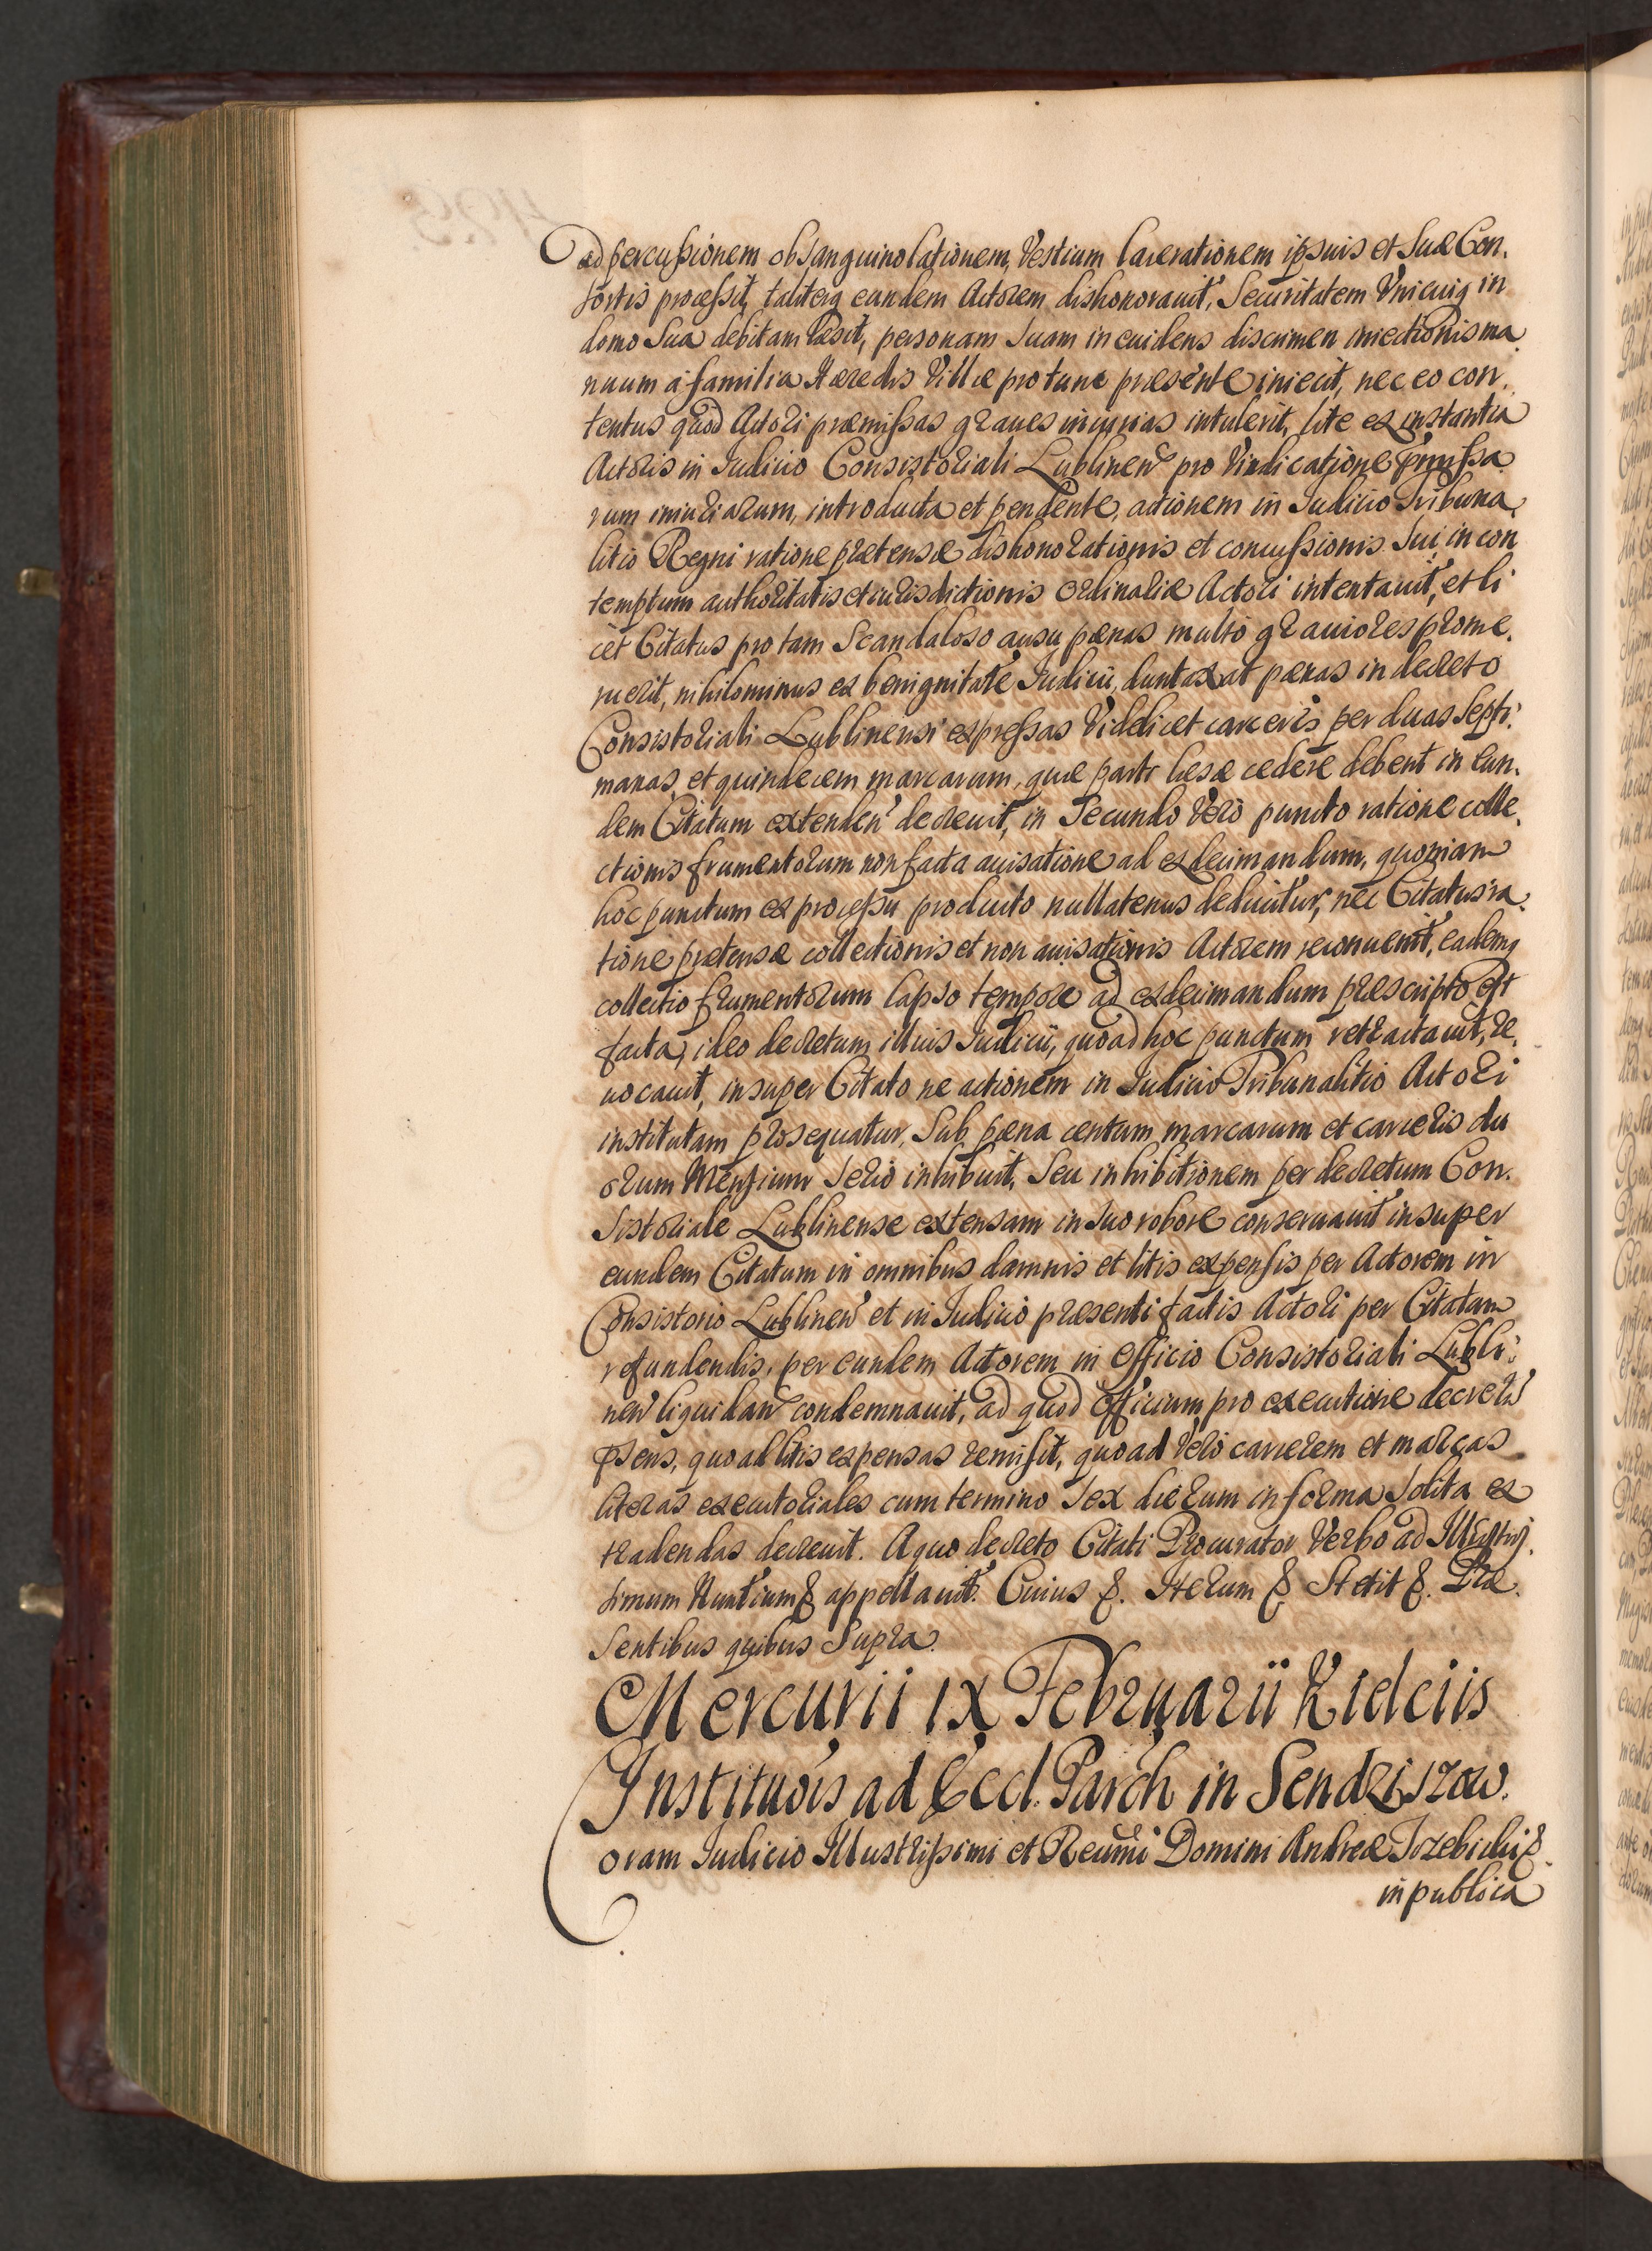 ad percussionem obsanguinolationem, Vestium lacerationem ipsius et Suæ Con,
sortis processit, taliterq eandem Actorem dishonorauit, Securitatem Vnicuiq in
domo Sua debitam læsit, personam Suam in euidens discrimen iniectionis ma,
nuum a familia Hæredis Villæ pro tunc præsente iniecit, nec eo con,
tentus quod Actori præmissas graues iniurias intulerit, lite ex instantia
Actoris in Iudicio Consistoriali Lublinen pro Vindicatione pmissa,
rum iniuriarum, introducta et pendente, actionem in Iudicio Tribuna,
litio Regni ratione prætensæ dishonorationis et concussionis Sui, in con
temptum authoritatis et iurisdictionis Ordinariæ Actori intentauit, et li
cet Citatus pro tam Scandaloso ausu pœnas multo grauiores prome,
ruerit, nihilominus ex benignitate Iudicii, duntaxat pœnas in decreto
Consistoriali Lublinensi expressas Videlicet carceris per duas Septi,
manas, et quindecem marcarum, quæ parti læsæ cedere debent in eun,
dem Citatum extenden decreuit, in Secundo Vero puncto ratione colle,
ctionis frumentorum non facta auisatione ad exdecimandum, quoniam
hoc punctum ex processu producto nullatenus deducitur, nec Citatus ra,
tione prætensæ collectionis et non auisationis Actorem reconuenit, eademq
collectio frumentorum lapso tempore ad exdecimandum præscripto est
facta, ideo decretum illius Iudicii, quoad hoc punctum retractauit, re,
uocauit, insuper Citato ne actionem in Iudicio Tribunalitio Actori
institutam prosequatur, Sub pœna centum marcarum et carceris du
orum Mensium Serio inhibuit, Seu inhibitionem per decretum Con,
Sistoriale Lublinense extensam in suo robore conseruauit insuper
eundem Citatum in omnibus damnis et litis expensis per Actorem in
Consistorio Lublinen et in Iudicio præsenti factis Actori per Citatum
refundendis, per eundem Actorem in Officio Consistoriali Lubli,
nen liquidan condemnauit, ad quod Officium pro executione decreti
psens, quoad litis expensas remisit, quoad Vero carcerem et marcas
literas executoriales cum termino Sex dierum in forma Solita ex
tradendas decreuit. A quo decreto Citati Procurator Verbo ad Illustris,
simum Nuntium & appellauit. Cuius &. Iterum & Stetit &. Præ,
Sentibus quibus Supra.
Mercurii IX Februarii Kielciis
Institutois ad Eccl. Parch in Sendziszow.
Coram Iudicio Illustrissimi et Reumi Domini Andreæ Trzebicki &.
in publica